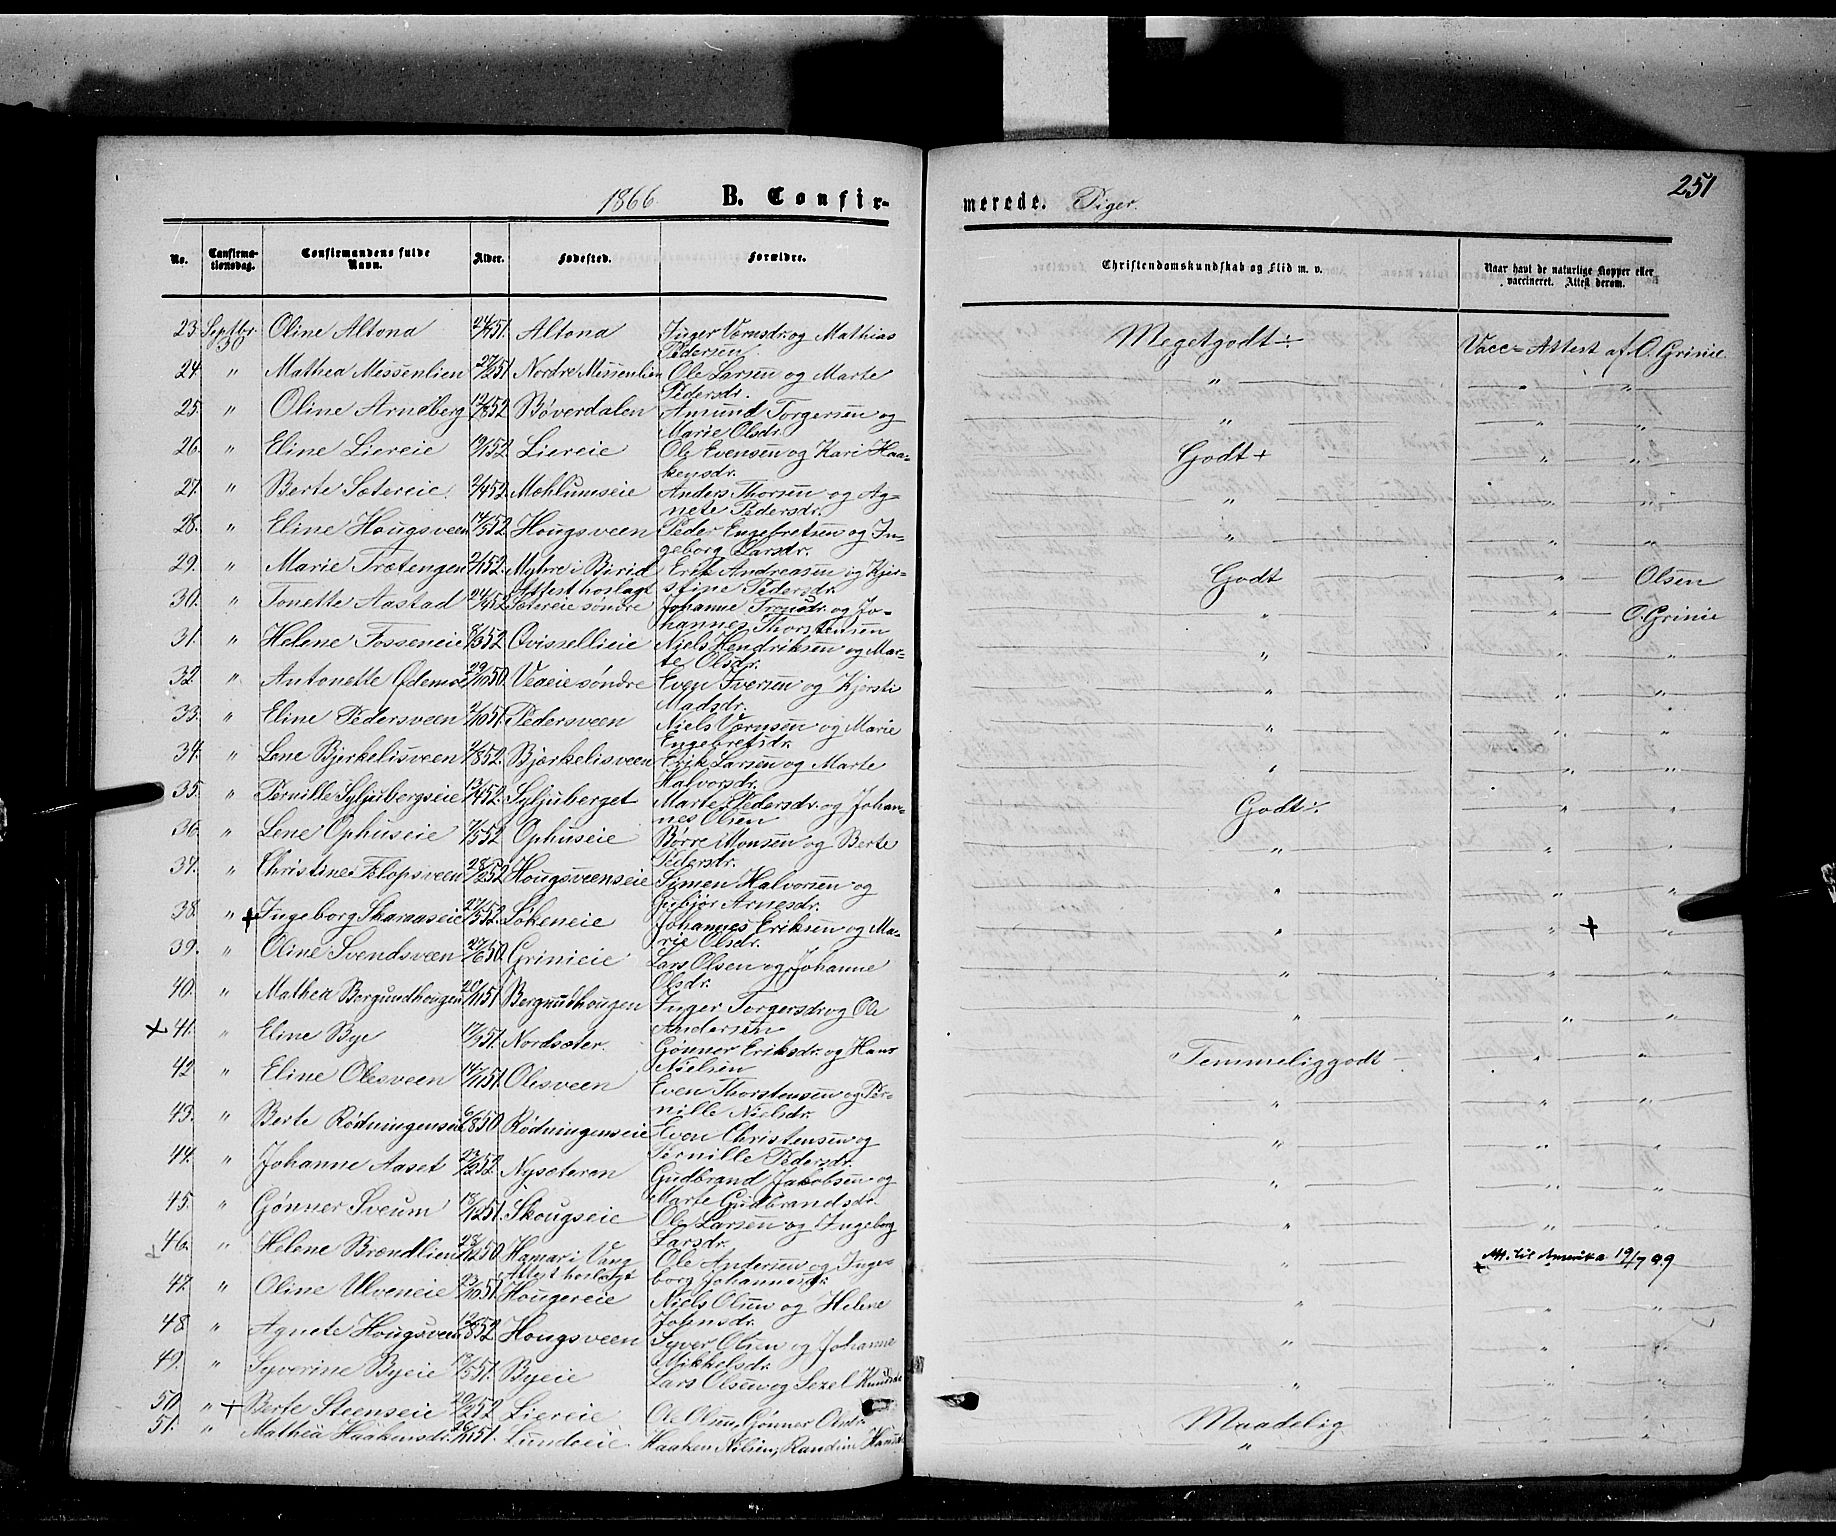 1866 B. Confir- merede. Piger. 251
No. Confirmationsdag. Confirmandens fulde Navn. Alder. Fødested. Forældre. Christendomskundskab og Flid m. v. Naar havt de naturlige Kopper eller vaccineret. Attest derom.
23. Septbr. 30 Oline Altona Altona Inger Vornsdr. og Mathias Pedersen Megetgodt ÷ Vacc= Attest af O. Grinie
24. " Mathea Messenlien Nordre Messenlien Ole Larsen og Marte Pedersdr. " " "
25. " Oline Arneberg Bøverdalen Amund Torgersen og Marie Olsdr. " " "
26. " Eline Liereie Liereie Ole Evensen og Kari Haakensdr. Godt + " "
27. " Berte Sætereie 2/4 52. Mæhlumseie Anders Thorsen og Agnete Pedersdr. " " "
28. " Eline Hougsveen Hougsveen Peder Engebretsen og Ingeborg Larsdr. " " "
29. " Marie Trætengen 2/1 52. Myhre i Birid Attest horslagt Erik Andreasen og Kjerstine Pedersdr. Godt " Olsen
30. " Tonette Aastad Sætereie søndre Johanne Tronsdr. og Johannes Thorstensen " " O. Grinie
31. " Helene Fosseneie 8/3 52 Qvisellieie Niels Hendriksen og Marte Olsdr. " " "
32 " Antonette Ødemo 29/10 50. Veaeie søndre Even Iversen og Kjersti Madsdr. " " "
33. " Eline Pedersveen 2/10 51. Pedersveen Niels Vornsen og Marie Engebretsdr. " " "
34. " Lene Bjerkelisveen 2/8 52. Bjørkelisveen Erik Larsen og Marte Halvorsdr. " " "
35. " Pernille Syljubergseie 13/4 52. Syljuberget Marte Pedersdr. og Johannes Olsen Godt ÷ " "
36. " Lene Ophuseie 7/5 52 Ophuseie Børre Monsen og Berte Pedersdr. " " "
37. " Christine Flopsveen 28/2 52 Hougsveenseie Simen Halvorsen og Gubjør Arnesdr. " " "
38. " + Ingeborg Skaraaseie Løkeneie Johannes Eriksen og Marie Olsdr. " " +
39. " Oline Svendsveen 27/6 50. Grinieie Lars Olsen og Johanne Olsdr. " " "
40. " Mathea Borgundhougen Borgundhougen Inger Torgersdr og Ole Andersen " " "
+ 41. " Eline Bye Nordsæter. Gønner Eriksdr. og Hans Nielsen Temmeliggodt " "
42 " Eline Olesveen 14/11 51. Olisveen Even Thorstensen og Pernille Nielsdr. " " "
43. " Berte Rødningenseie 6/8 50 Rødningenseie Even Christensen og Pernille Pedersdr. " " "
44. " Johanne Aaset Nysæteren Gudbrand Jakobsen og Marte Gudbrandsdr. " " "
45. " Gønner Sveum Skougseie Ole Larsen og Ingeborg Larsdr. " " "
46. " Helene Brændlien Hamar i Vang Attest horslagt Ole Andersen og Ingeborg Johannesdr. " + Att. til Amerika 19/7 99
47. " Oline Ulveneie 23/10 51. Hougereie Niels Olsen og Helene Johnsdr. " " "
48. " Agnete Hougsveen Hougsveen Syver Olsen og Johanne Mikkelsdr. "
49. " Syverine Byeie Byeie Lars Olsen og Sezel "
50. " + Berte Steenseie Liereie Ole Olsen, Gønner Olsdr. Maadelig
51. " Mathea Haakensdr. Lundeie. Haaken Nilsen, Randine "